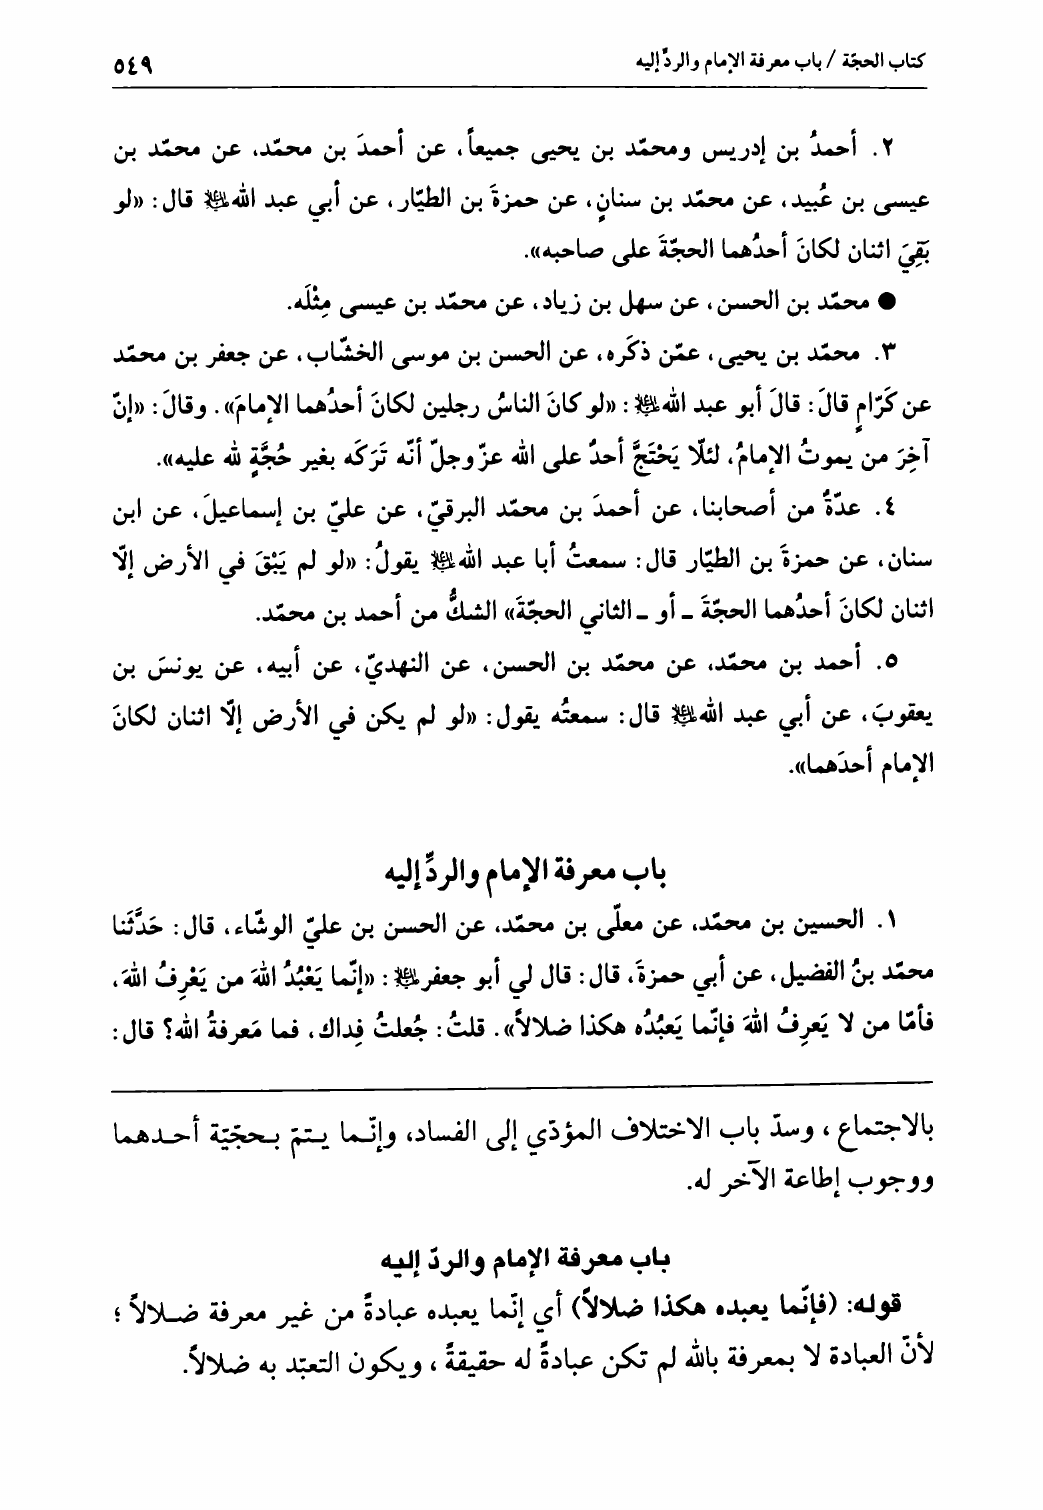 كتاب الحجّة / باب معرفة الإمام والردّ إليه ٥٤٩
٢. أحمدُ بن إدريس ومحمّد بن يحيى جميعاً، عن أحمدَ بن محمّد، عن محمّد بن
عيسى بن عُبيد، عن محمّد بن سنانٍ، عن حمزةَ بن الطيّار، عن أبي عبد اللهﷺ قال: «لو
بَقِيَ اثنان لكانَ أحدُهما الحجّةَ على صاحبه».
● محمّد بن الحسن، عن سهل بن زياد، عن محمّد بن عيسى مِثْلَه.
٣. محمّد بن يحيى، عمّن ذكَره، عن الحسن بن موسى الخشّاب، عن جعفر بن محمّد
عن كَرّامٍ قالَ: قالَ أبو عبد الله﷼: «لو كانَ الناسُ رجلين لكانَ أحدُهما الإمامَ». وقالَ: «إنّ
آخِرَ من يموتُ الإمامُ، لئلّا يَحْتَجَّ أحدٌ على الله عزّ وجلّ أنّه تَرَكَه بغير حُجَّةٍ لله عليه».
٤. عدّةٌ من أصحابنا، عن أحمدَ بن محمّد البرقيّ، عن عليّ بن إسماعيلَ، عن ابن
سنان، عن حمزةَ بن الطيّار قال: سمعتُ أبا عبد الله يقولُ: «لو لم يَبْقَ في الأرض إلّا
اثنان لكانَ أحدُهما الحجّةَ ـ أو ـ الثاني الحجّةَ» الشكُّ من أحمد بن محمّد.
٥. أحمد بن محمّد، عن محمّد بن الحسن، عن النهديّ، عن أبيه، عن يونسَ بن
يعقوبَ، عن أبي عبد الله قال: سمعتُه يقول: «لو لم يكن في الأرض إلّا اثنان لكانَ
الإمام أحدَهما».
باب معرفة الإمام والردِّ إليه
١. الحسين بن محمّد، عن معلّى بن محمّد، عن الحسن بن عليّ الوشّاء، قال: حَدَّثَنا
محمّد بنُ الفضيل، عن أبي حمزةَ، قال: قال لي أبو جعفر: «إنّما يَعْبُدُ اللهَ من يَعْرِفُ اللهَ،
فأمّا من لا يَعرِفُ اللهَ فإنّما يَعبُدُه هكذا ضلالاً». قلتُ: جُعلتُ فِداك، فما مَعرفةُ الله؟ قال:
بالاجتماع، وسدّ باب الاختلاف المؤدّي إلى الفساد، وإنّما يتمّ بحجّيّة أحدهما
ووجوب إطاعة الآخر له.
باب معرفة الإمام والردّ إليه
قوله: (فإنّما يعبده هكذا ضلالاً) أي إنّما يعبده عبادةً من غير معرفة ضلالاً؛
لأنّ العبادة لا بمعرفة بالله لم تكن عبادةً له حقيقةً، ويكون التعبّد به ضلالاً.